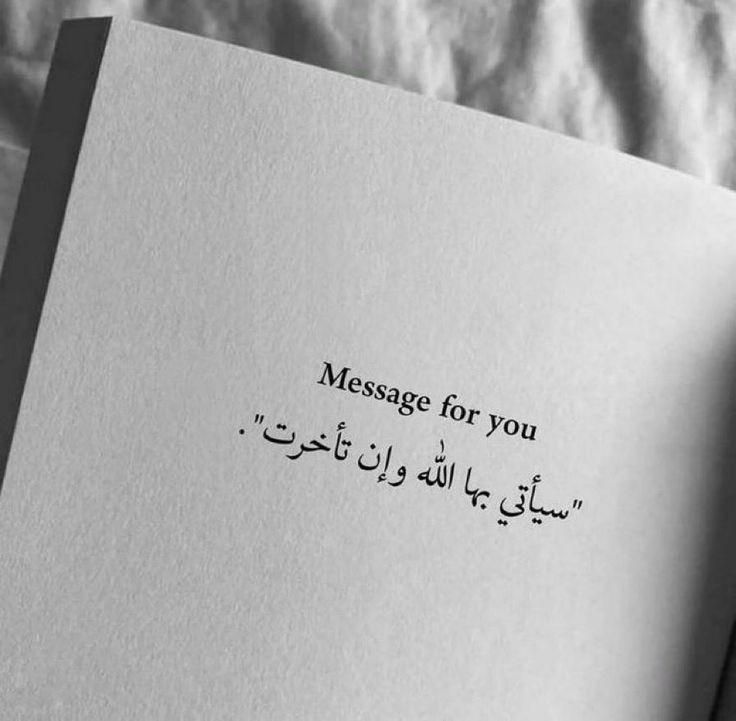 Message for you
"سيأتي بها الله وإن تأخرت".